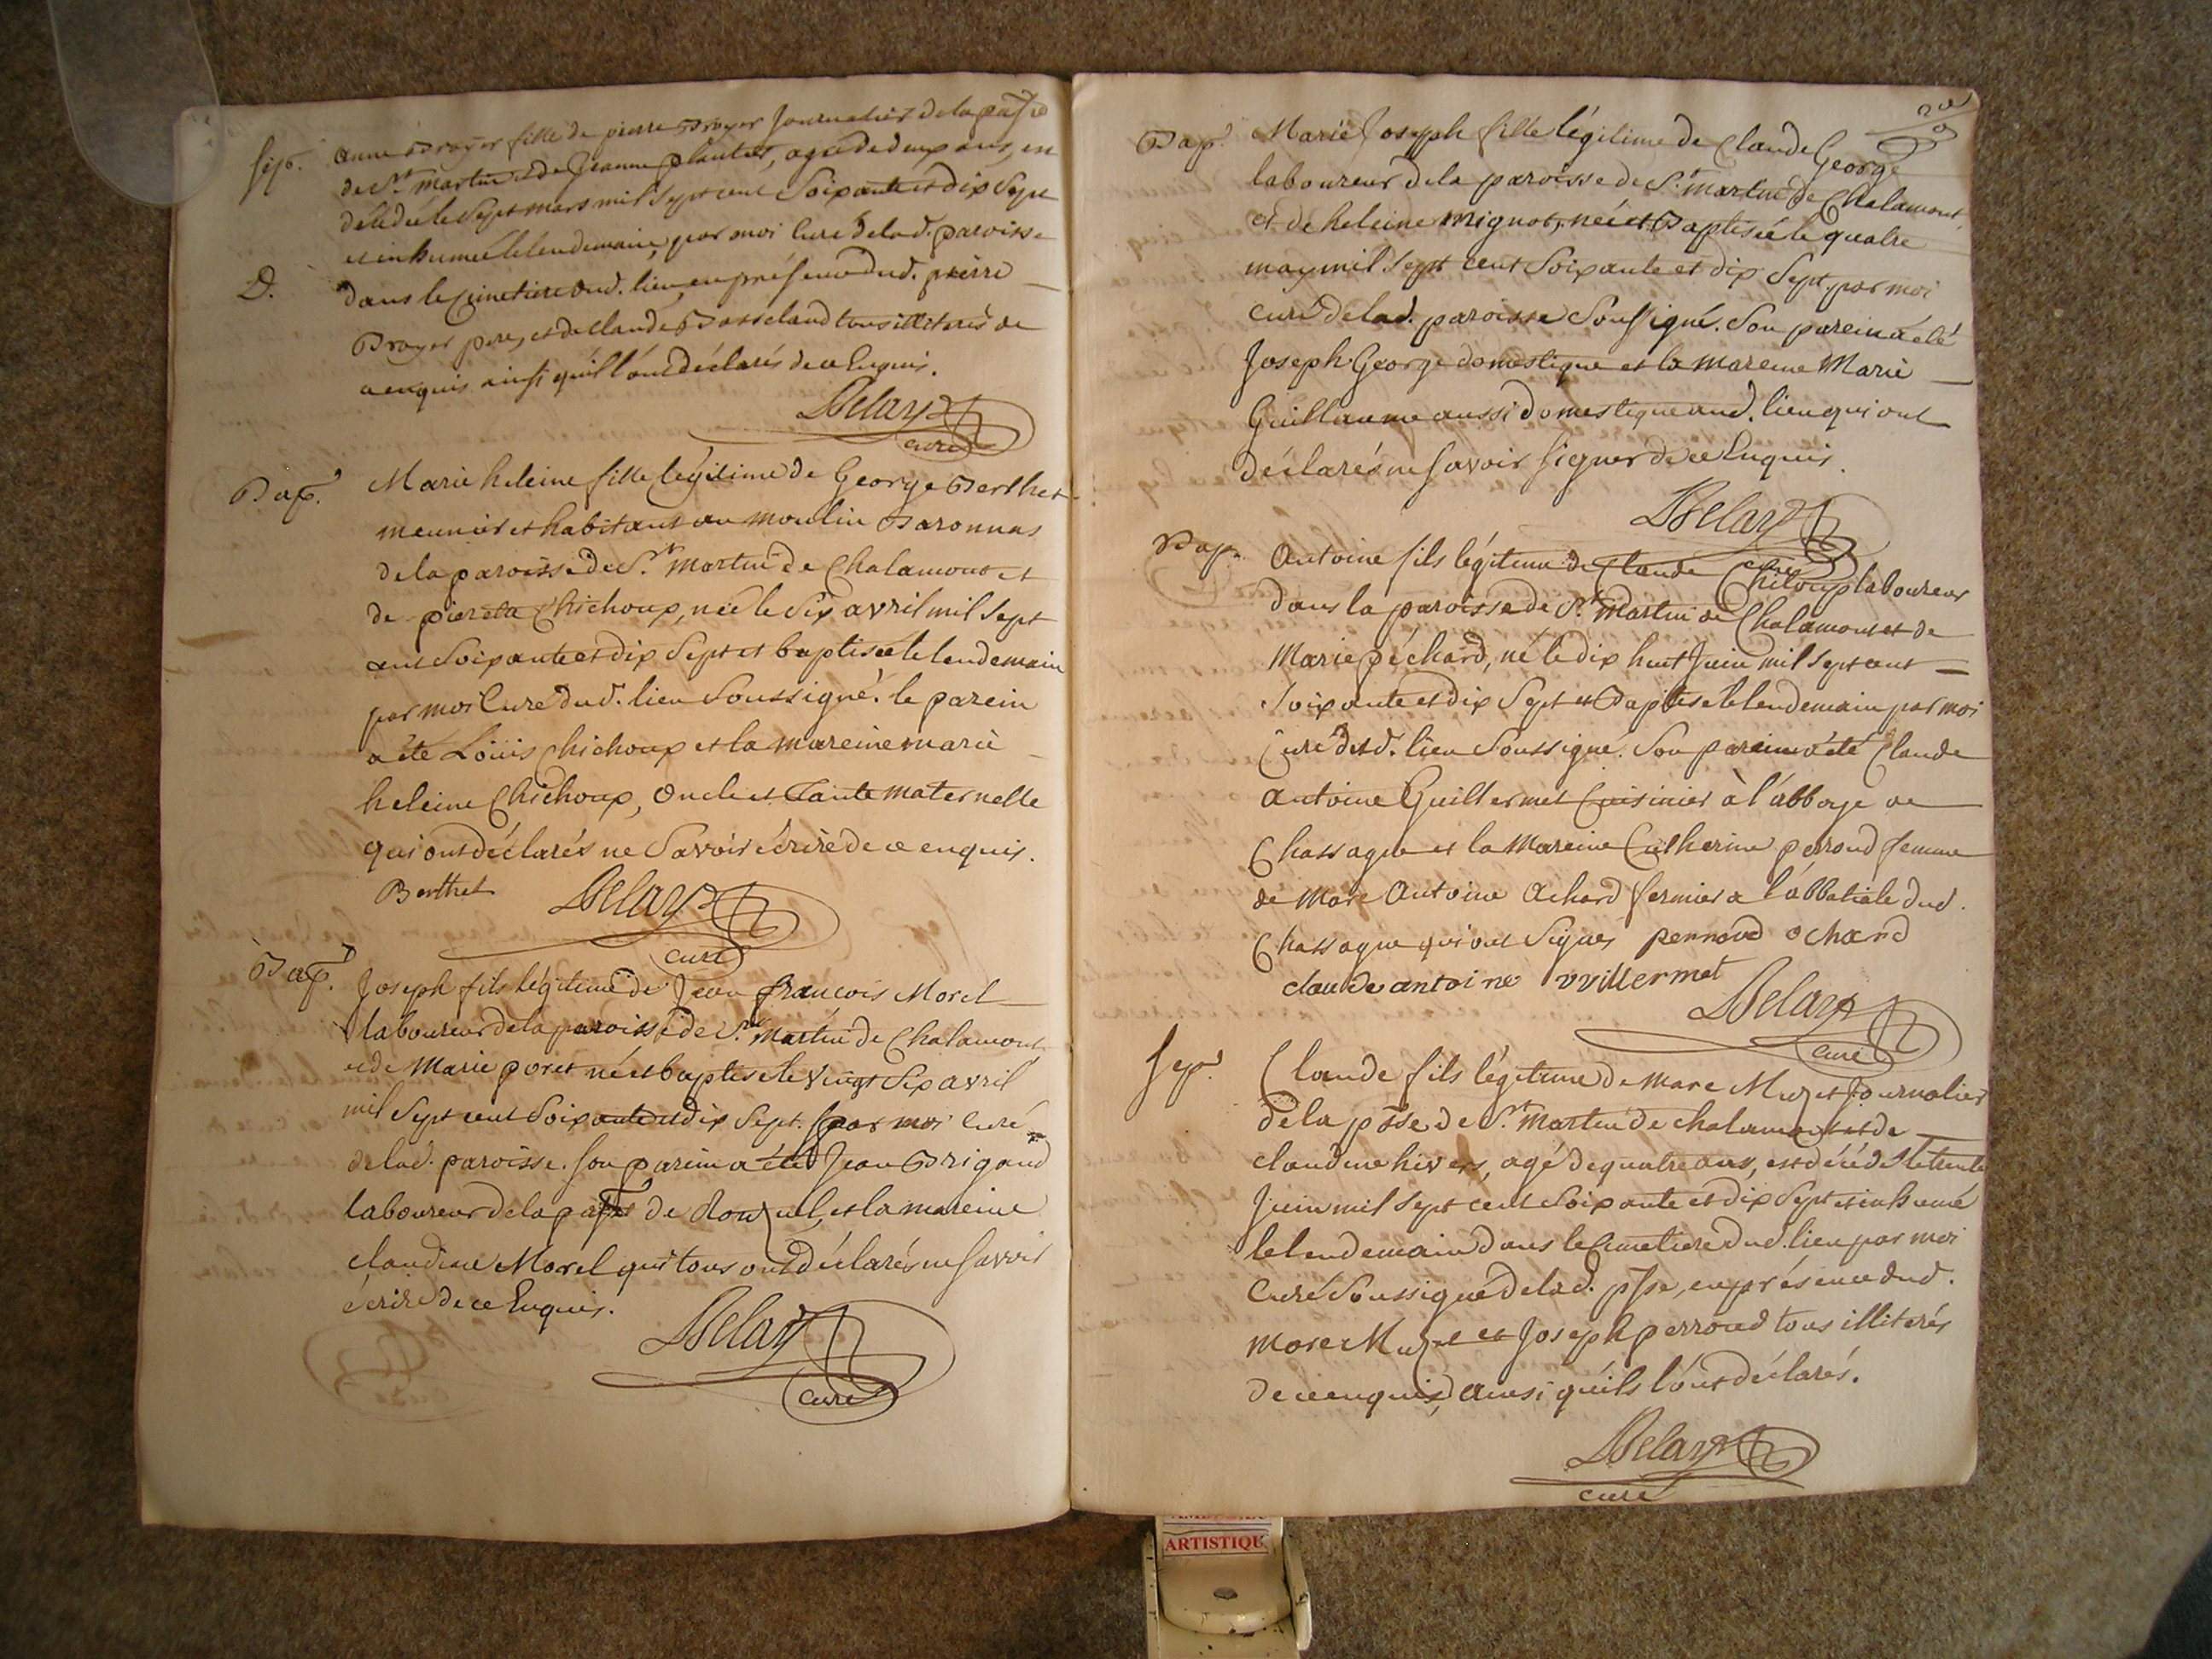 Sep.
anne Broyer fille de pierre Broyer Journalier de la
de St. martin et de Jeanne plantier, agée de deux ans, est
décédée le Sept mars mil Sept cent Soixante et dix Sept
et inhumée le lendemain, par moi Curé de lad. paroisse
D.
dans le Cimetiere dud. lieu, en présence dud. pierre
Broyer pere, et de Claude tous illiterés de
ce enquis ainsi qu'il l'ont déclarés de ce Enquis.
Delay
curé
Bap.
Marie heleine fille légitime de George Berthet
meunier et habitant au moulin Baronnas
de la paroisse de St. Martin de Chalamont et
de piereta Chichoux, née le Six avril mil Sept
cent Soixante et dix Sept et baptisée le lendemain
par moi Curé dud. lieu Soussigné. le parein
a été Loüis Chichoux et la mareine marie
heleine Chichoux, oncle et Tante maternelle
qui ont déclarés ne Savoir écrire de ce enquis.
Berthet Delay
curé
Bap.
Joseph fils légitime de Jean françois Morel
laboureur de la paroisse de St. Martin de Chalamont
et de Marie poret né et baptisé le vingt Six avril
mil Sept cent Soixante et dix Sept. par moi Curé
de lad. paroisse. Son parein a été Jean Brigand
laboureur de la de et la mareine
claudine Morel qui tous ont déclarés ne Savoir
écrire de ce Enquis.
Delay
curé
Bap.
Marie Joseph fille légitime de Claude George
laboureur de la paroisse de St. martin de Chalamont
et de heleine mignot, née et Baptisée le quatre
may mil Sept cent Soixante et dix Sept, par moi
curé de lad. paroisse Soussigné. Son parein a été
Joseph George domestique et la mareine Marie
Guillaume aussi domestique aud. lieu qui ont
déclarés ne Savoir Signer de ce Enquis.
Delay
curé
Bap.
Antoine fils légitime de Claude Chiloup laboureur
dans la paroisse de St. Martin de Chalamont et de
Marie péchard, né le dix huit Juin mil Sept cent
Soixante et dix Sept et Baptisé le lendemain par moi
Curé dud. lieu Soussigné. Son parein a été Claude
antoine Guillermet Cuisinier à l'abbaye de
Chassagne et la Mareine Catherine perroud femme
de Marc Antoine Achard fermier a l'abbatiale dud.
Chassagne qui ont Signés pennoud ochard
claude antoine vvillermet
Delay
curé
Sep.
Claude fils légitime de Marc Muzet Journalier
de la psse de St. Martin de chalamont et de
claudine hivers, agé de quatre ans, est décédé le trente
Juin mil Sept cent Soixante et dix Sept et inhumé
le lendemain dans le Cimetiere dud. lieu par moi
Curé Soussigné de lad. psse, en présence dud.
Marc Muzet et Joseph perroud tous illiterés
de ce enquis, ainsi qu'ils l'ont déclarés.
Delay
curé
ARTISTIQU